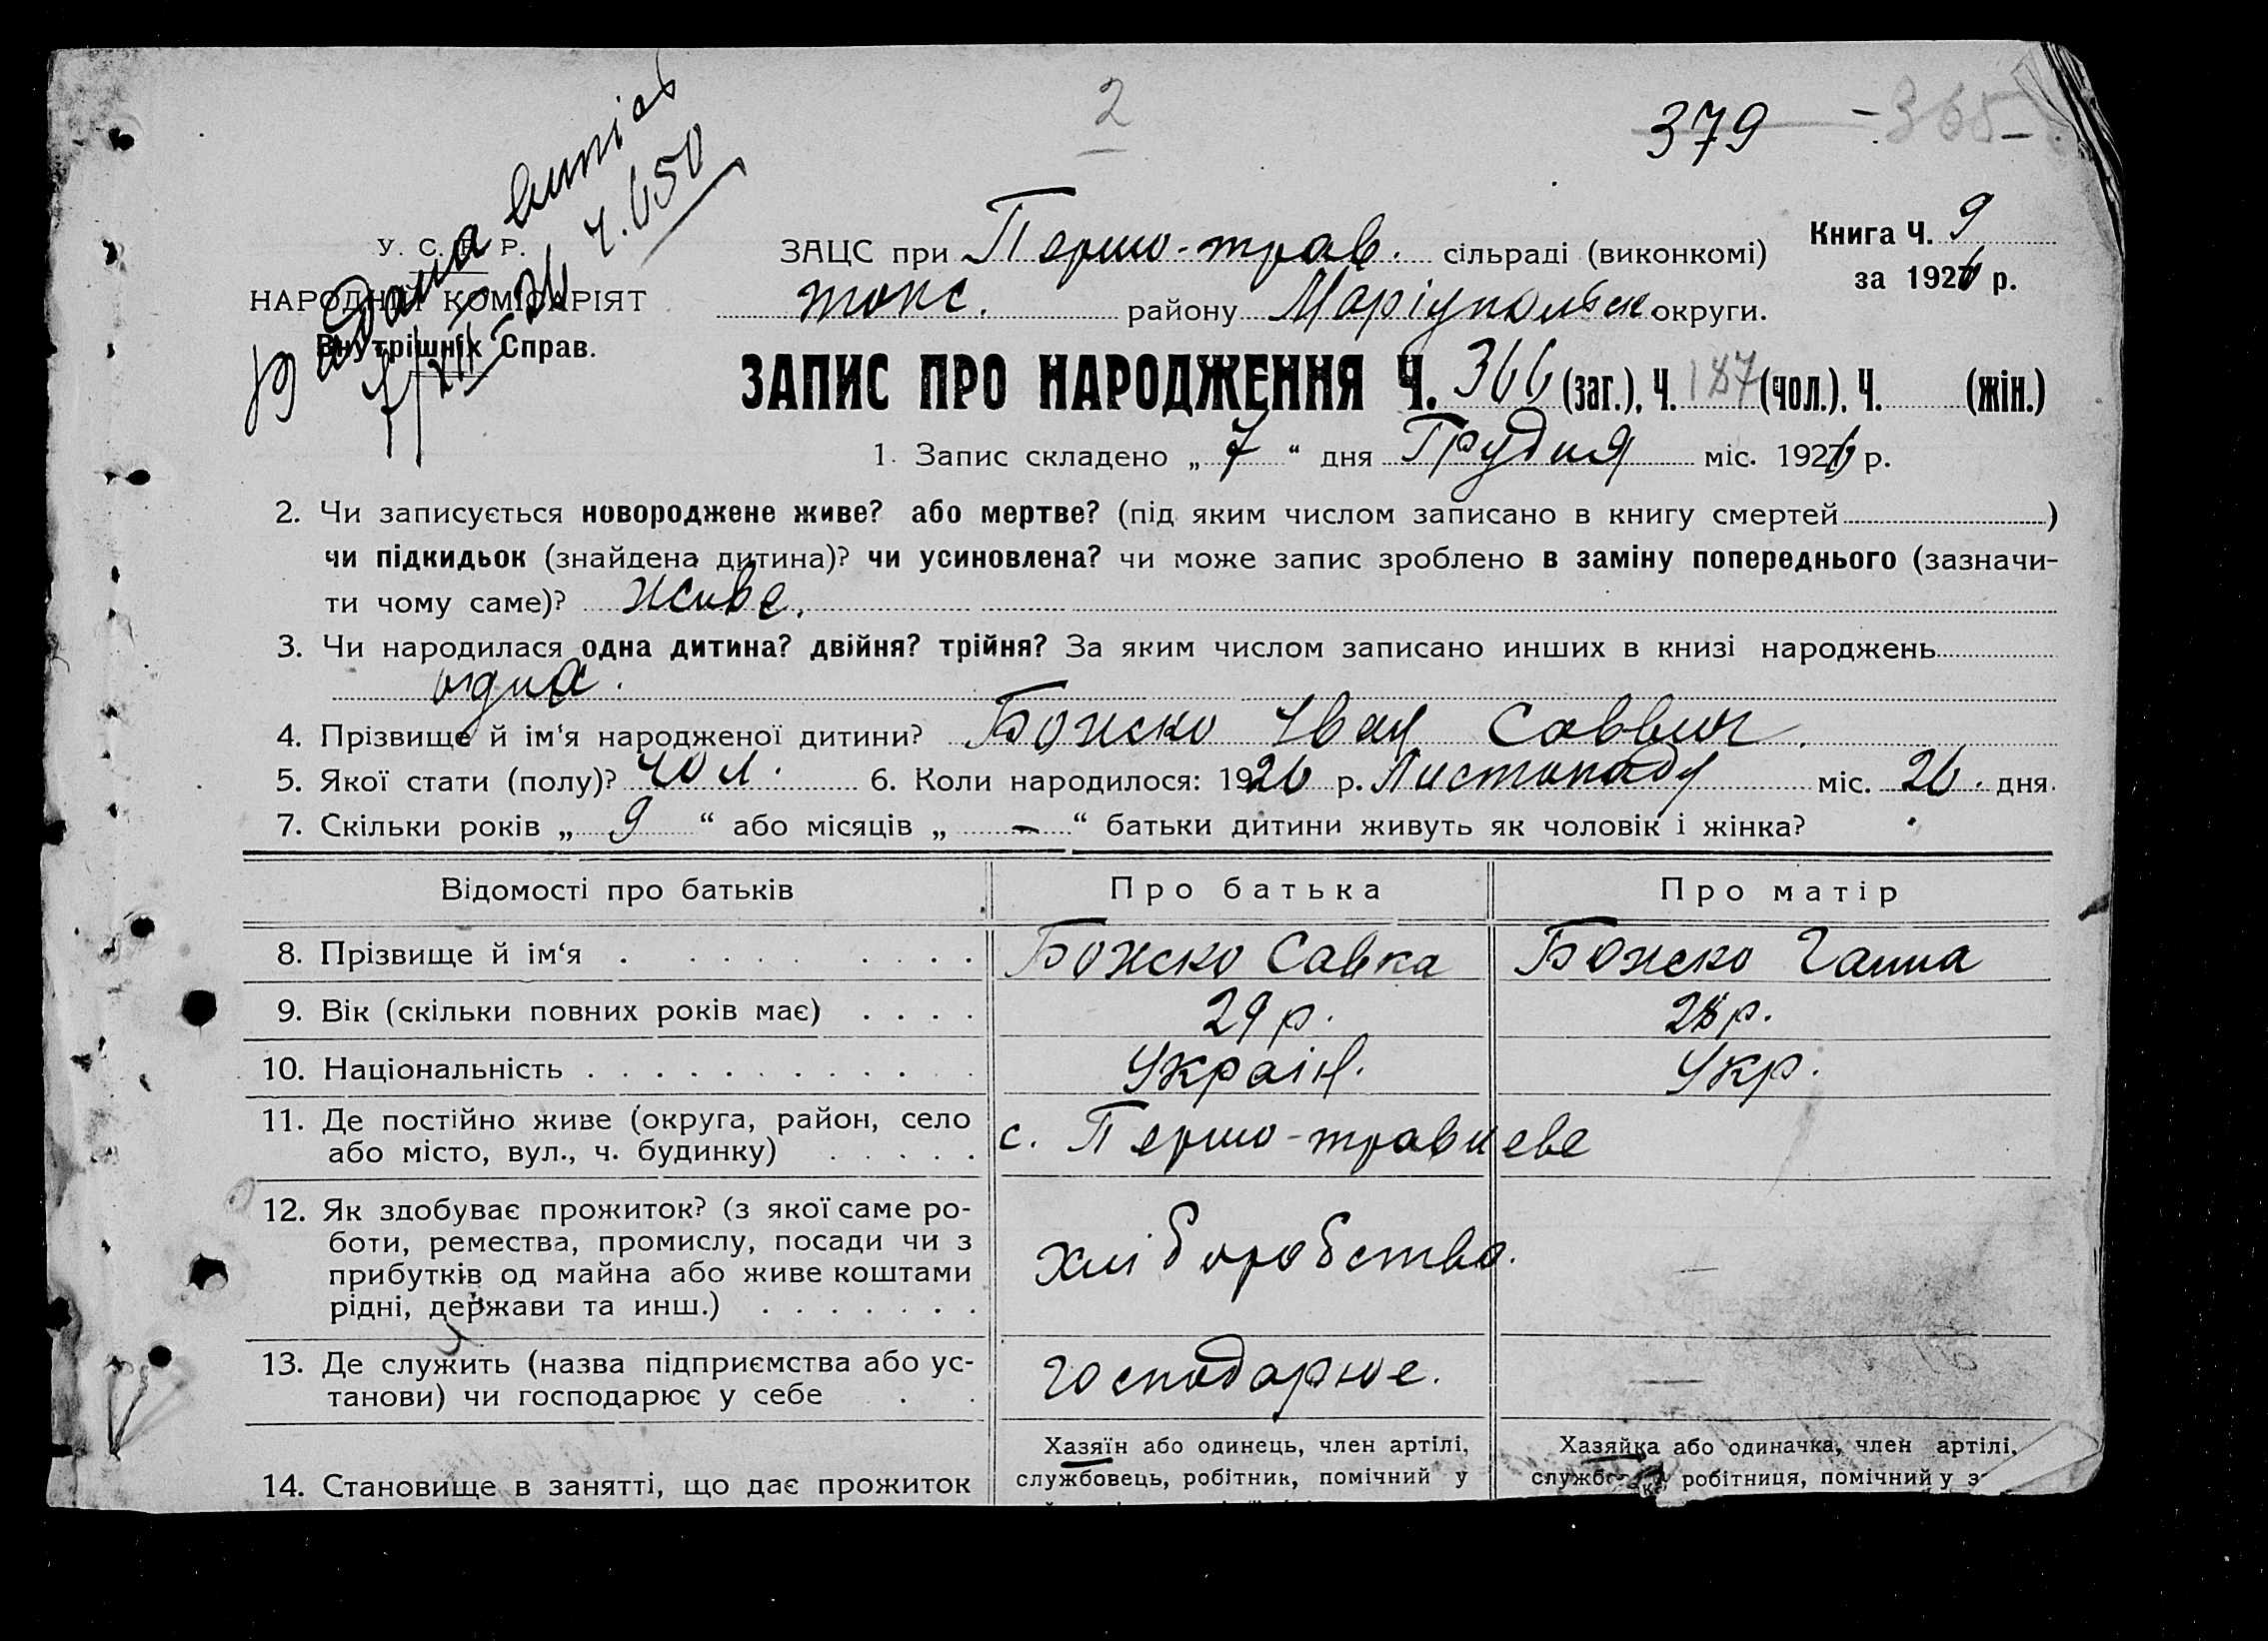 2
379
-365-
Видана випис
7/XII-26 ч. 650
У. С. Р. Р.
НАРОДНИЙ КОМІСАРІЯТ
Внутрішніх Справ.
ЗАЦС при Першо-трав. сільраді (виконкомі)
Книга Ч. 9
за 1926 р.
района Маріупольськ округи.
ЗАПИС ПРО НАРОДЖЕННЯ Ч. 366 (заг.), Ч. 187 (чол.), Ч. (жін.)
1. Запис складено „ 7 “ дня Грудня міс. 1926 р.
2. Чи записується новороджене живе? або мертве? (під яким числом записано в книгу смертей )
чи підкидьок (знайдена дитина)? чи усиновлена? чи може запис зроблено в заміну попереднього (зазначи-
ти чому саме)? живе.
3. Чи народилася одна дитина? двійня? трійня? За яким числом записано инших в книзі народжень
одна.
4. Прізвище й ім‘я народженої дитини? Божко Іван Саввич.
5. Якої стати (полу)? чол. 6. Коли народилося: 1926 р. Листопаду міс. 26. дня.
7. Скільки років „ 9 “ або місяців „ — “ батьки дитини живуть як чоловік і жінка?
Відомості про батьків Про батька Про матір
8. Прізвище й ім‘я . Божко Савка Божко Ганна
9. Вік (скільки повних років має) 29 р. 28 р.
10. Національність Україн. Укр.
11. Де постійно живе (округа, район, село
або місто, вул., ч. будинку)
с. Першо-травневе
12. Як здобуває прожиток? (з якої саме ро-
боти, ремества, промислу, посади чи з
прибутків од майна або живе коштами
рідні, держави та инш.)
хліборобство.
13. Де служить (назва підприємства або ус-
танови) чи господарює у себе
господарює.
14. Становище в занятті, що дає прожиток
Хазяїн або одинець, член артілі,
службовець, робітник, помічний у
Хазяйка або одиначка, член артілі,
робітниця, помічний у